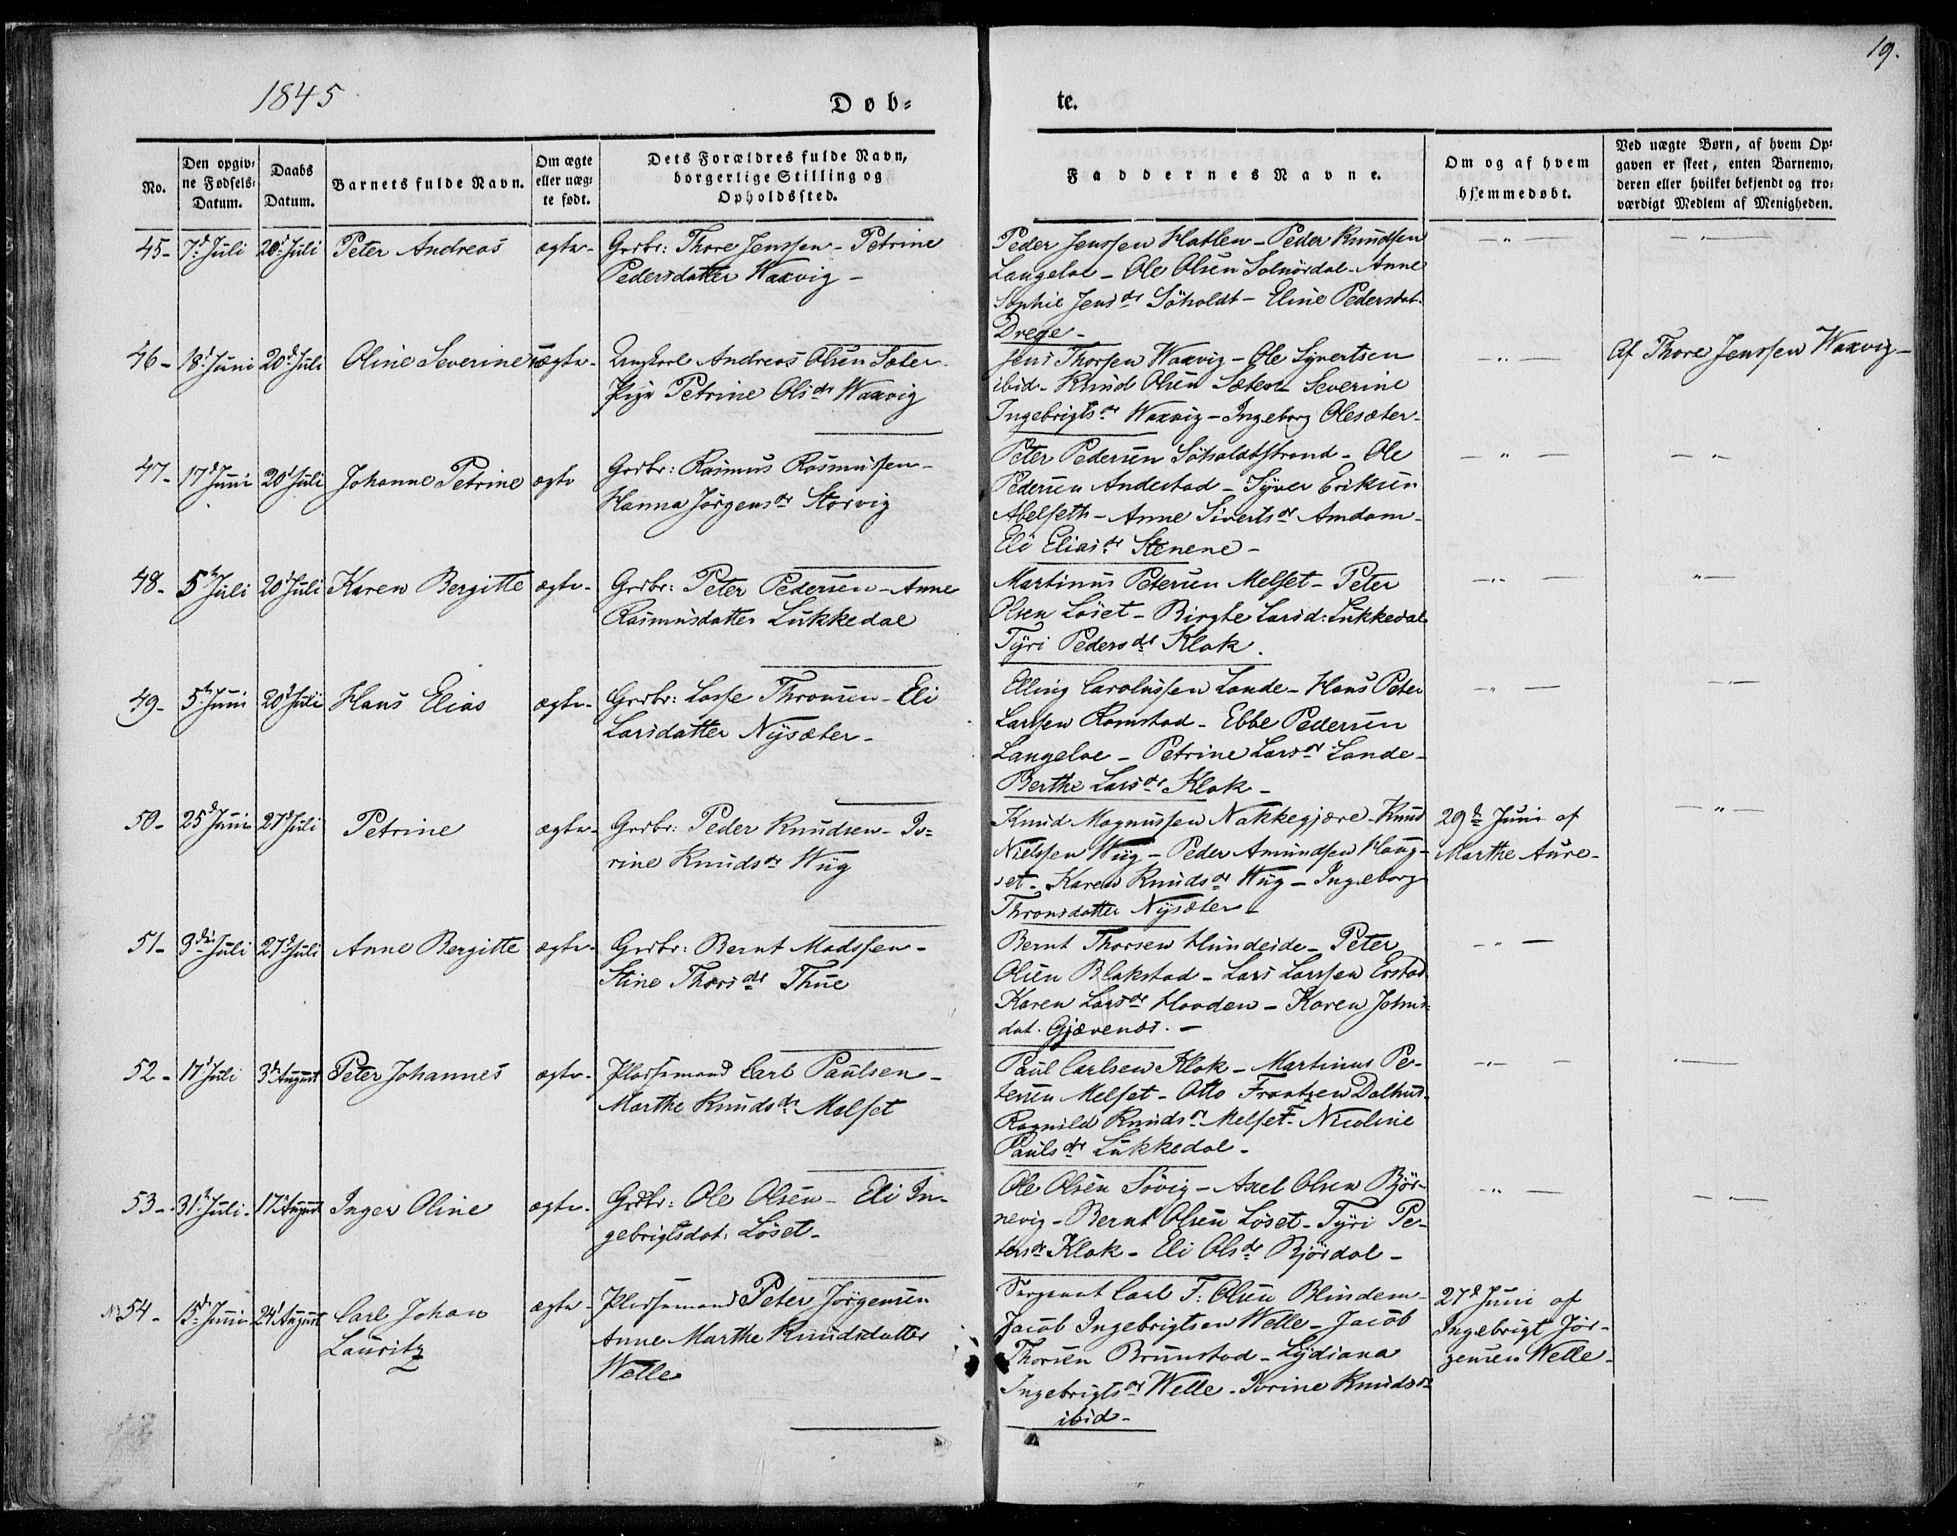 19.
1845
Døb-
te.
No.
Den opgiv-
ne Fødsels-
Datum.
Daabs
Datum.
Barnets fulde Navn.
Om ægte
eller uæg-
te født.
Dets Forældres fulde Navn,
borgerlige Stilling og
Opholdssted.
Faddernes Navne.
Om og af hvem
hjemmedøbt.
Ved uægte Børn, af hvem Op-
gaven er skeet, enten Barnemo-
deren eller hvilket bekjendt og tro-
værdigt Medlem af Menigheden.
45- 7d Juli 20d Juli Peter Andreas ægte- Grdbr: Thore Jenssen - Petrine
Pedersdatter Waxvig -
Peder Jenssen Hatlen - Peder Knudsen
Langeloe - Ole Olsen Solnördal - Anne
Sophie Jensdr Söholdt - Eline Pedersdat.
Drege -
46- 18d Juni 20d Juli Oline Severine uægte- Ungkarl Andreas Olsen Sæter
Pige Petrine Olsdr Waxvig
Jens Thorsen Waxvig - Ole Syvertsen
ibid - Knud Olsen Sæter - Severine
Ingebrigtsdr Waxvig - Ingeborg Olesæter -
Af Thore Jenssen Waxvig -
47- 17d Juni 20d Juli Johanne Petrine ægte Grdbr: Rasmus Rasmussen -
Hanna Jörgensdr Storvig
Peter Pedersen Söholdtstrand - Ole
Pedersen Andestad - Syver Eriksen
Abelseth - Anne Sivertsdr Amdam -
Eli Eliasdr Stenene -
48- 5te Juli 20d Juli Karen Bergitte ægte- Grdbr: Peter Pedersen - Anne
Rasmusdatter Lukkedal
Martinus Petersen Melset - Peter
Olsen Löset - Birgte Larsd: Lukkedal
Tyri Pedersdr Klok.
49- 5te Juni 20d Juli Hans Elias ægte- Grdbr: Lasse Thronsen - Eli
Larsdatter Nysæter -
Elling Carolussen Lande - Hans Peter
Larssen Ramstad - Ebbe Pedersen
Langeloe - Petrine Larsdr Lande -
Berthe Larsdr Klok -
50- 25d Juni 27d Juli Petrine ægte- Grdbr: Peder Knudsen - Io-
rine Knudsdr Wiig
Knud Magnussen Nakkegjære - Knud
Nielssen Wiig - Peder Amundsen Haug-
set - Karen Knudsdr Wiig - Ingeborg
Thronsdatter Nysæter -
29de Juni af
Marthe Aure -
51- 3die Juli 27d Juli Anne Bergitte ægte- Grdbr: Bernt Madssen -
Stine Thorsdr Thue
Bernt Thorsen Hundeide - Peter
Olsen Blakstad - Lars Larssen Erstad
Karen Larsdr Hovden - Karen Johns-
dat. Gjævenes. -
52- 17d Juli 3de August Peter Johannes ægte- Pladsemand Carl Paulsen -
Marthe Knudsdr Melset
Paul Carlsen Klok - Martinus Pe-
tersen Melset - Otto Frantzen Dalhus
Ragnild Knudsdr Melset - Nicoline
Paulsdr Lukkedal -
53- 31te Juli 17de August Inger Oline ægte- Grdbr: Ole Olsen - Eli In-
gebrigtsdat: Löset -
Ole Olsen Sövig - Axel Olsen Björ-
nevig - Bernt Olsen Löset - Tyri Pe-
tersdr Klok - Eli Olsdr Björdal -
No 54- 15d Juni 24d August Carl Johan
Lauritz
ægte- Pladsemand Peter Jörgensen
Anne Marthe Knudsdatter
Welle
Sergeant Carl F: Olsen Blindem -
Jacob Ingebrigtsen Welle - Jacob
Thorsen Brunstad - Lydiana
Ingebrigtsdr Welle - Iorine Knudsdr
ibid -
27d Juni af
Ingebrigt Jör-
gensen Welle -